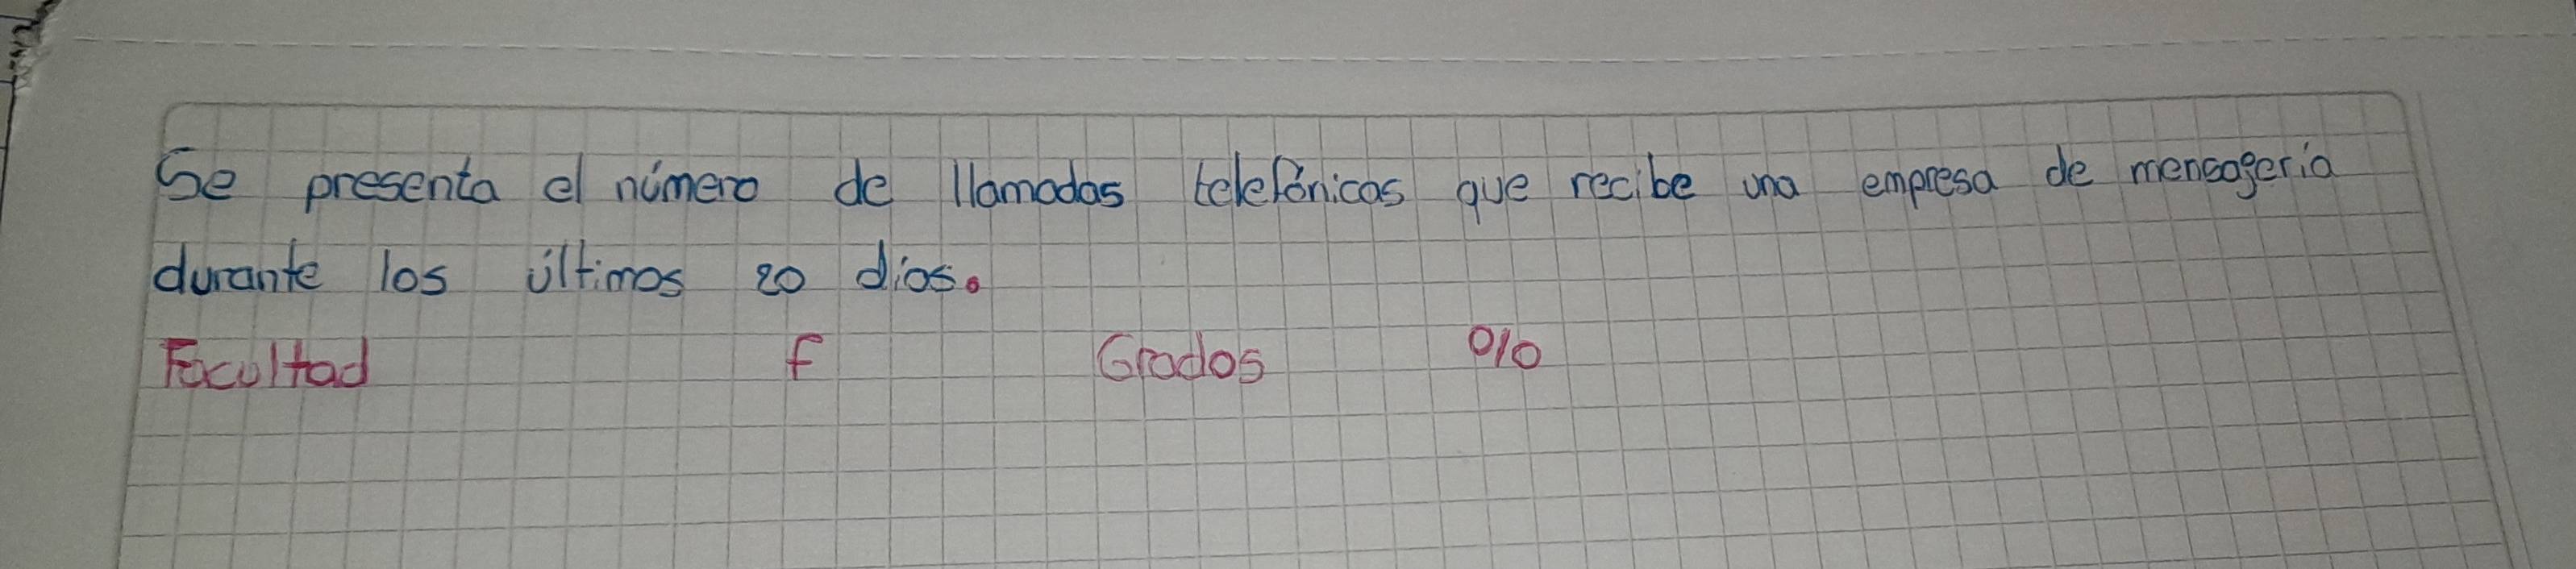 Se presenta el número de llamadas telefónicas que recibe una empresa de mensagería
durante los últimos 20 días.
Facultad f Grados %